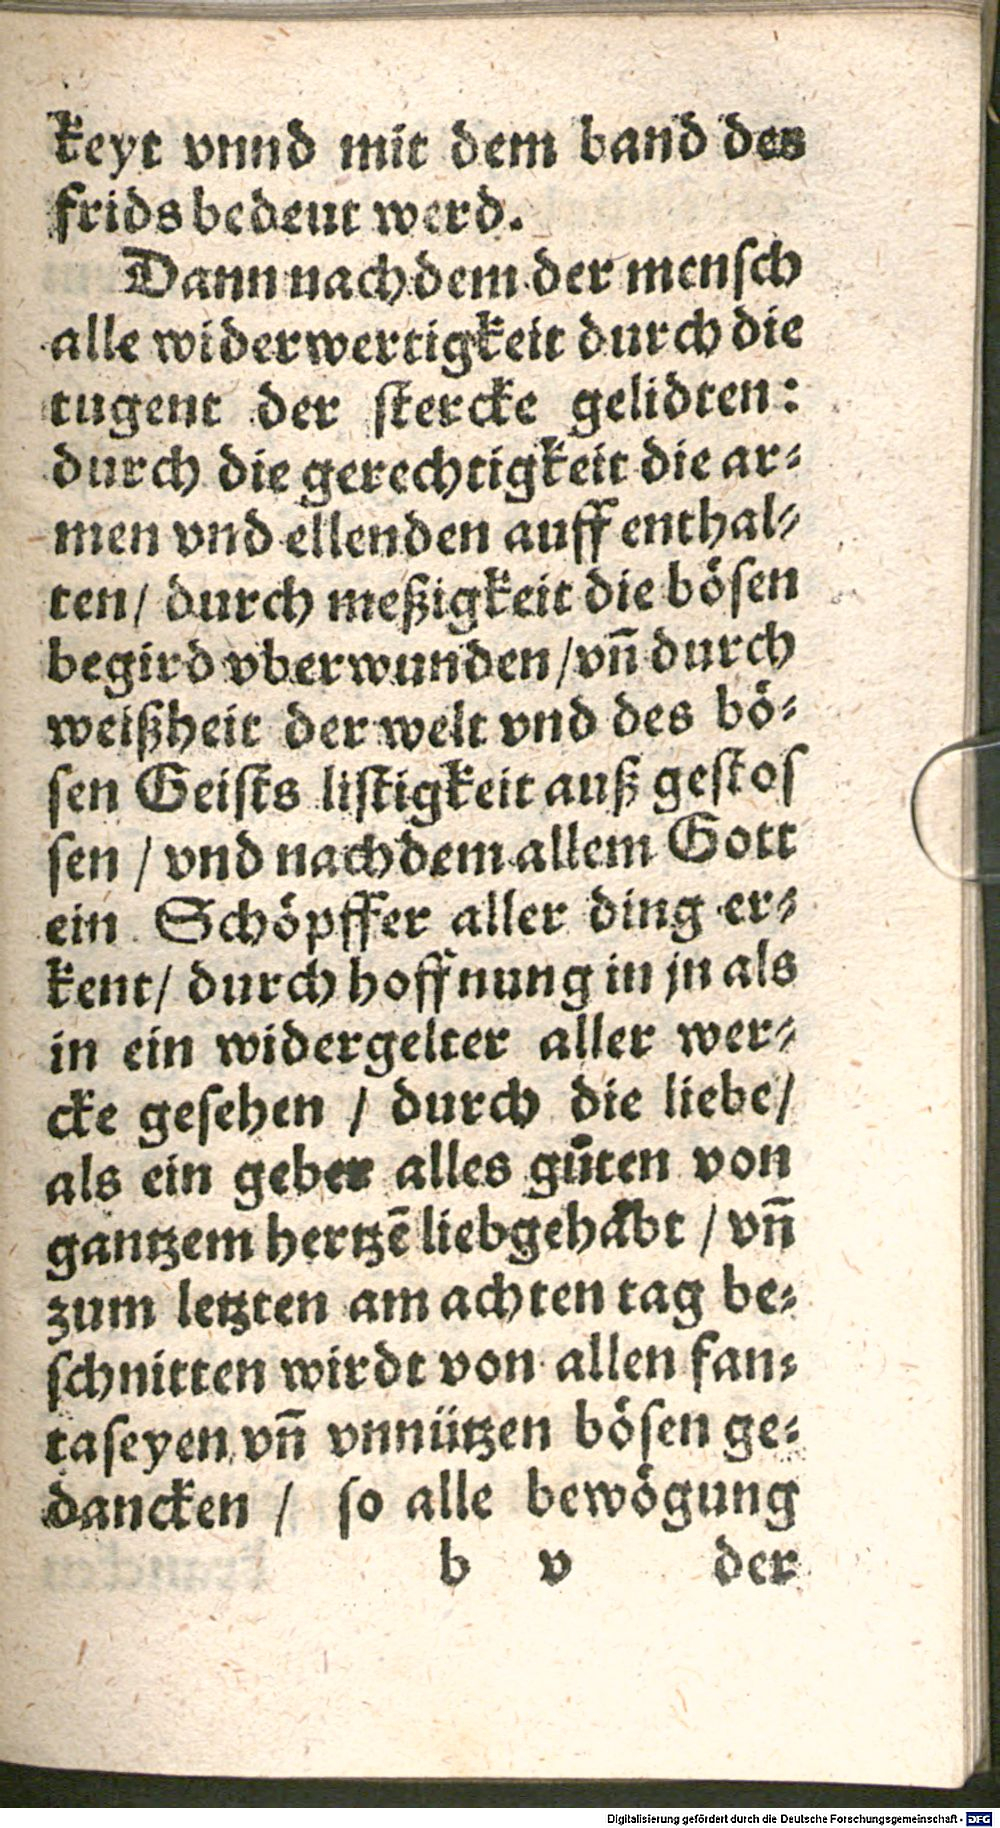 keyt vnnd mit dem band des
frids bedeut werd.
Dann nach dem der mensch
alle widerwertigkeit durch die
tugent der stercke gelidten:
durch die gerechtigkeit die ar⸗
men vnd ellenden auff enthal⸗
ten/ durch meßigkeit die bösen
begird vberwunden/vñ durch
weißheit der welt vnd des bö⸗
sen Geists listigkeit auß gestos
sen / vnd nach dem allem Gott
ein Schöpffer aller ding er⸗
kent/ durch hoffnung in jn als
in ein widergelter aller wer⸗
cke gesehen / durch die liebe/
als ein geber alles gůten von
gantzem hertzẽ liebgehabt / vñ
zum letzten am achten tag be⸗
schnitten wirdt von allen fan⸗
taseyen vñ vnnützen bösen ge⸗
dancken / so alle bewögung
b v der
Digitalisierung gefördert durch die Deutsche Forschungsgemeinschaft - DFG